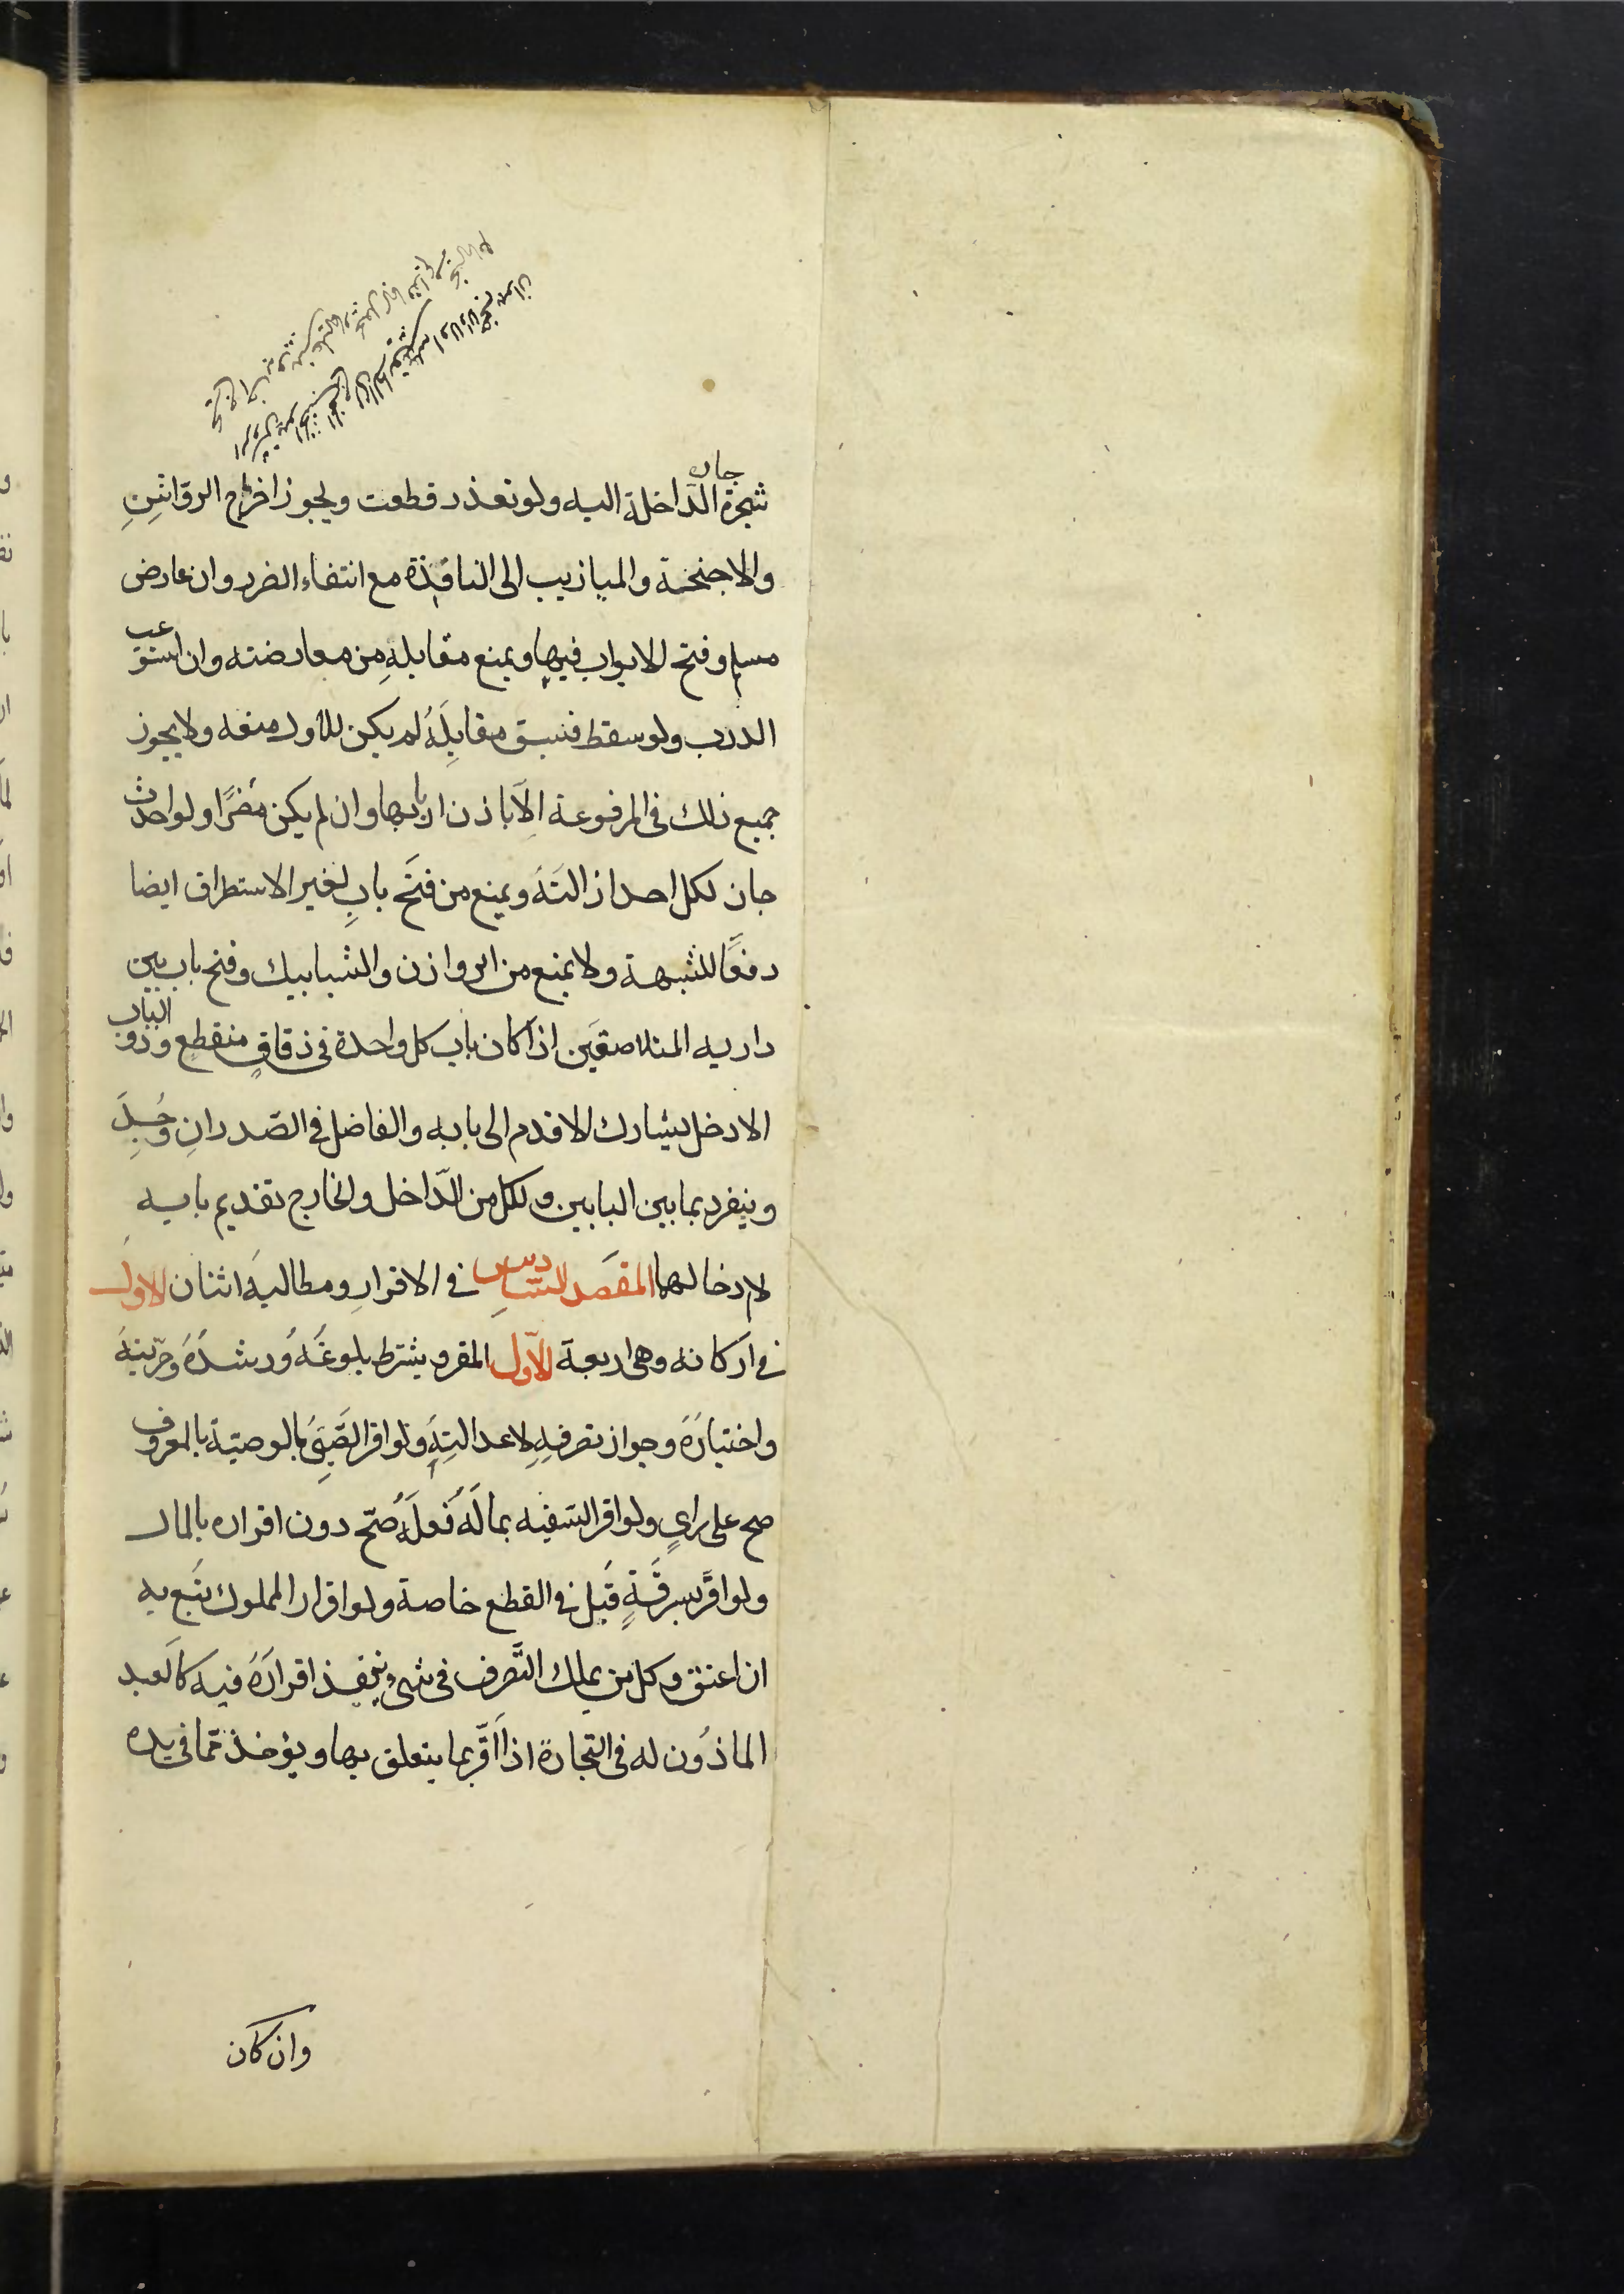 شجرة جاره الدّاخلة اليه ولو تعذر قطعت ويجوز اخراج الرواشنِ
والاجنحة والميازيب الى النافذة مع انتفاء الضرر وان عارض
مسلم وفتح الابواب فيها ويمنع مقابلهِ من معارضته وان استوعب
الدرب ولو سقط فسبق مقابِلَهُ لم يكن للاول منعه ولا يجوز
جميع ذلك فى المرفوعة الّا باذن اربابها وان لم يكن مُضرًا ولو احدث
جاز لكل احد ازالتَهُ ويمنع من فتَح بابٍ لغير الاستطراق ايضا
دفعًا للشبهة ولا يمنع من الروازن والشبابيك وفتح باب بين
داريه المتلاصقَين اذا كان باب كل واحدة فى زقاقٍ منقطع وذو الباب
الادخل يشارك الاقدم الى بابه والفاضل فى الصّدر ان وُجِدَ
وينفرد بما بين البابين ولكل من الدّاخل والخارج تقديم بابه
لا ادخالهما المقصَد السّادسِ فى الاقرارِ ومطالبهَ اثنان الاولَ
فى اركانه وهى اربعة الاَوّل المقر ويشترط بلوغَهُ وُرشدُهَ وحرّيتهُ
واختيارَهُ وجواز تصرفهِ لا عدالتِهِ ولو اقر الصَّبِىَ بالوصيّة بالمعروف
صح على راىٍ ولو اقر السّفيه بمالَهُ فُعلَهُ صُحّ دون اقراره بالمال
ولو اقرَّ بسرقَةٍ قُبل فى القطع خاصة ولو اقرار المملوك يتَبع به
ان اعتق وكل من يملك التَّصرف فى شىءٍ ينفذ اقرارَهَ فيه كالعبد
الماذُون له فى التجارة اذا اقّر بما يتعلق بها ويؤخذ ممّا فى يده
وان كان